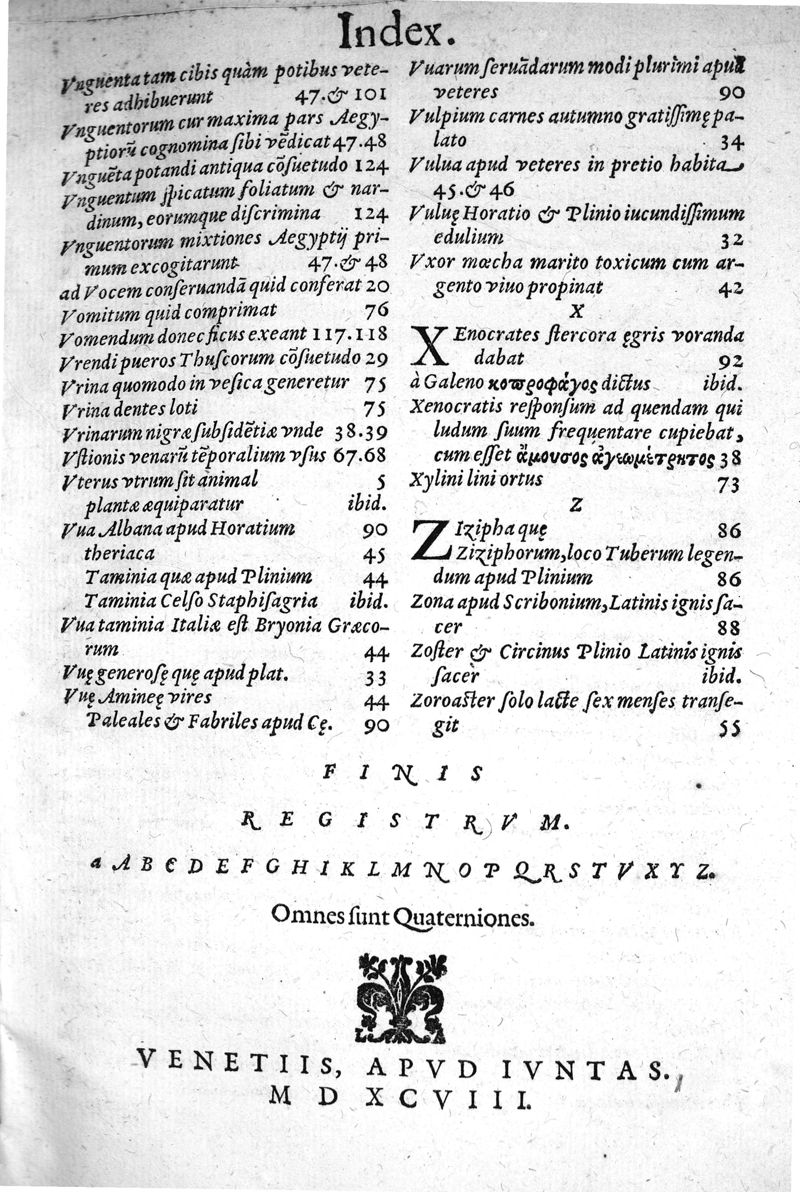 Index.
Vnguenta tam cibis quàm potibus vete-
res adhibuerunt 47.& 101
Vnguentorum cur maxima pars Aegy-
ptiorũ cognomina sibi vẽdicat 47.48
Vnguẽta potandi antiqua cõsuetudo 124
Vnguentum spicatum foliatum & nar-
dinum, eorumque discrimina 124
Vnguentorum mixtiones Aegyptij pri-
mum excogitarunt 47.& 48
ad Vocem conseruandã quid conferat 20
Vomitum quid comprimat 76
Vomendum donec ficus exeant 117.118
Vrendi pueros Thuscorum cõsuetudo 29
Vrina quomodo in vesica generetur 75
Vrina dentes loti 75
Vrinarum nigræ subsidẽtiæ vnde 38.39
Vstionis venarũ tẽporalium vsus 67.68
Vterus vtrum sit animal 5
plantæ æquiparatur ibid.
Vua Albana apud Horatium 90
theriaca 45
Taminia quæ apud Plinium 44
Taminia Celso Staphisagria ibid.
Vua taminia Italiæ est Bryonia Græco-
rum 44
Vuę generosę quę apud plat. 33
Vuę Amineę vires 44
Paleales & Fabriles apud Cę. 90
Vuarum seruãdarum modi plurimi apud
veteres 90
Vulpium carnes autumno gratissimę pa-
lato 34
Vulua apud veteres in pretio habita
45.& 46
Vuluę Horatio & Plinio iucundissimum
edulium 32
Vxor mœcha marito toxicum cum ar-
gento viuo propinat 42
X
XEnocrates stercora ęgris voranda
dabat 92
à Galeno κοπροφάγος dictus ibid.
Xenocratis responsum ad quendam qui
ludum suum frequentare cupiebat,
cum esset ἄμουσος ἀγεωμέτρητος 38
Xylini lini ortus 73
Z
ZIzipha quę 86
Ziziphorum, loco Tuberum legen-
dum apud Plinium 86
Zona apud Scribonium, Latinis ignis sa-
cer 88
Zoster & Circinus Plinio Latinis ignis
sacer ibid.
Zoroaster solo lacte sex menses transe-
git 55
F I N I S
R E G I S T R V M.
a A B C D E F G H I K L M N O P Q R S T V X Y Z.
Omnes sunt Quaterniones.
VENETIIS, APVD IVNTAS.
M D XCVIII.